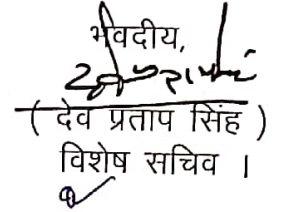 भवदीय,
( देव प्रताप सिंह )
विशेष सचिव ।